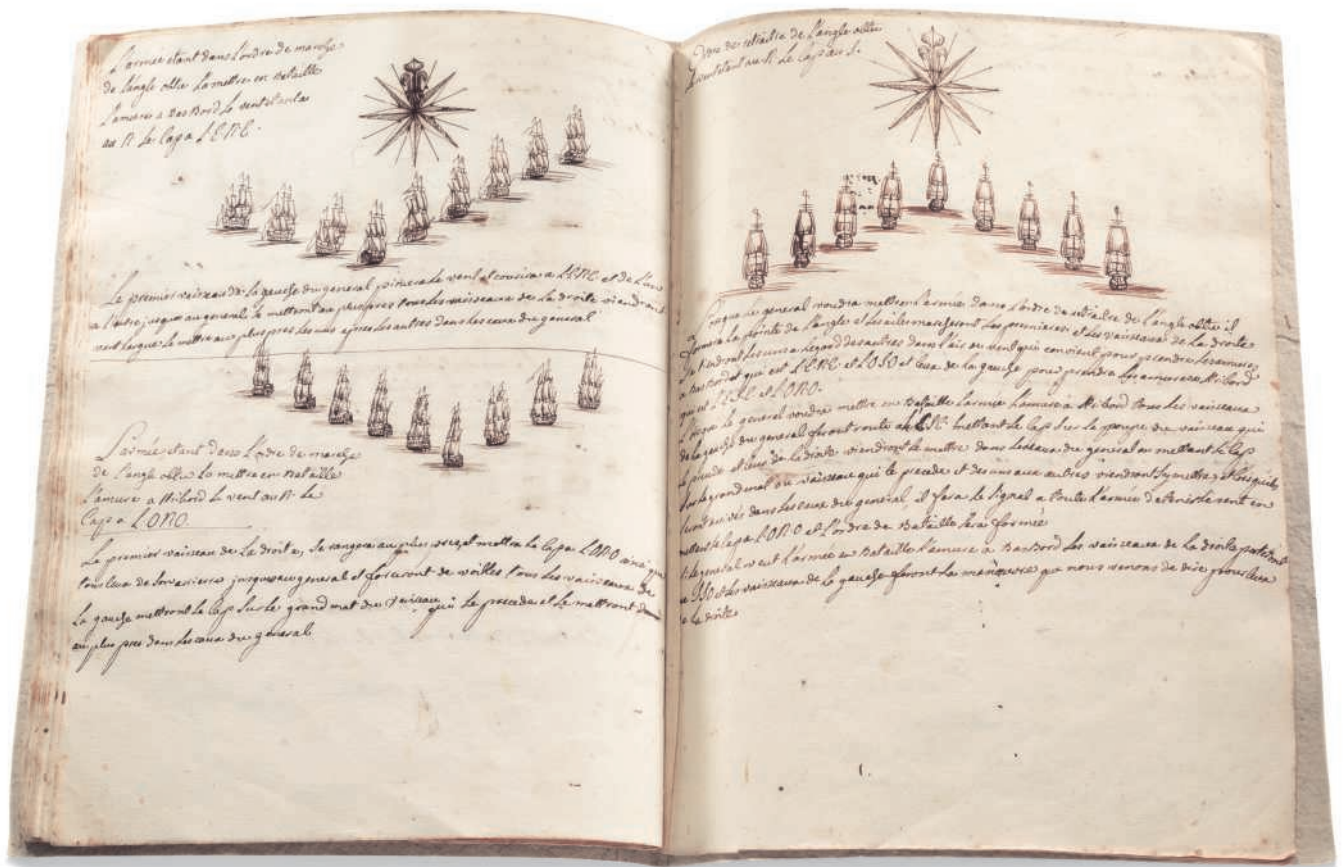 L'armée etant dans l'ordre de marche
de l'angle obtu la mettre en Bataille
l'amure a Bas Bord le vent etant
au N le Cap a L'ENE.
Le premier vaisseau de la gauche du general pincera le vent et courira a L'ENE et de l'un
a l'autre jusqu'au general se mettront au plus pres tous les vaisseaux de la droite viendront
vent largue se mettre au plus pres les uns apres les autres dans les eaux du general
L'armée etant dans l'ordre de marche
de l'angle obtu la mettre en Bataille
l'amure a Stribord le vent au N le
Cap a L'ONO.
Le premier vaisseau de la droite, se rangera au plus pres, et mettra le Cap a L'ONO ainsi que
tous ceux de jusqu'au general et forceront de voilles tous les vaisseaux de
La gauche mettront le Cap sur le grand mat du vaisseau qui le precede et se mettront
au plus pres dans les eaux du general
Ordre de retraite de l'angle obtu
Le vent etant au N Le Cap au S.
Lorsque le general voudra mettre l'armée dans l'ordre de retraite de l'angle obtu il
formera la pointe de l'angle et les ailes marcheront les premieres et les vaisseaux de la droite
se tiendront les uns a l'egard des autres dans l'ais de vent qui convient pour prendre les amures
a Bas Bord qui est L'ENE et L'OSO et ceux de la gauche pour prendre les amures a Stribord
qui est L'ESE et L'ONO.
Lorsque le general voudra mettre en Bataille l'armée l'amure a Stribord tous les vaisseaux
de la gauche du general feront route au mettant le Cap sur la poupe du vaisseau qui
le precede et ceux de la droite viendront se mettre dans les eaux du general en mettant le Cap
sur le grand mat du vaisseau qui le precede et des uns aux autres viendront s'y mettre, et lorsqu'ils
seront arrivés dans les eaux du general, il fera le signal a toute l'armée de tenir le vent en
mettant le Cap a L'ONO et l'ordre de Bataille sera formée
Si le general veut l'armée en Bataille l'amure a Bas Bord les vaisseaux de la droite
et les vaisseaux de la gauche feront la manœuvre que nous venons de dire pour ceux
de la droite